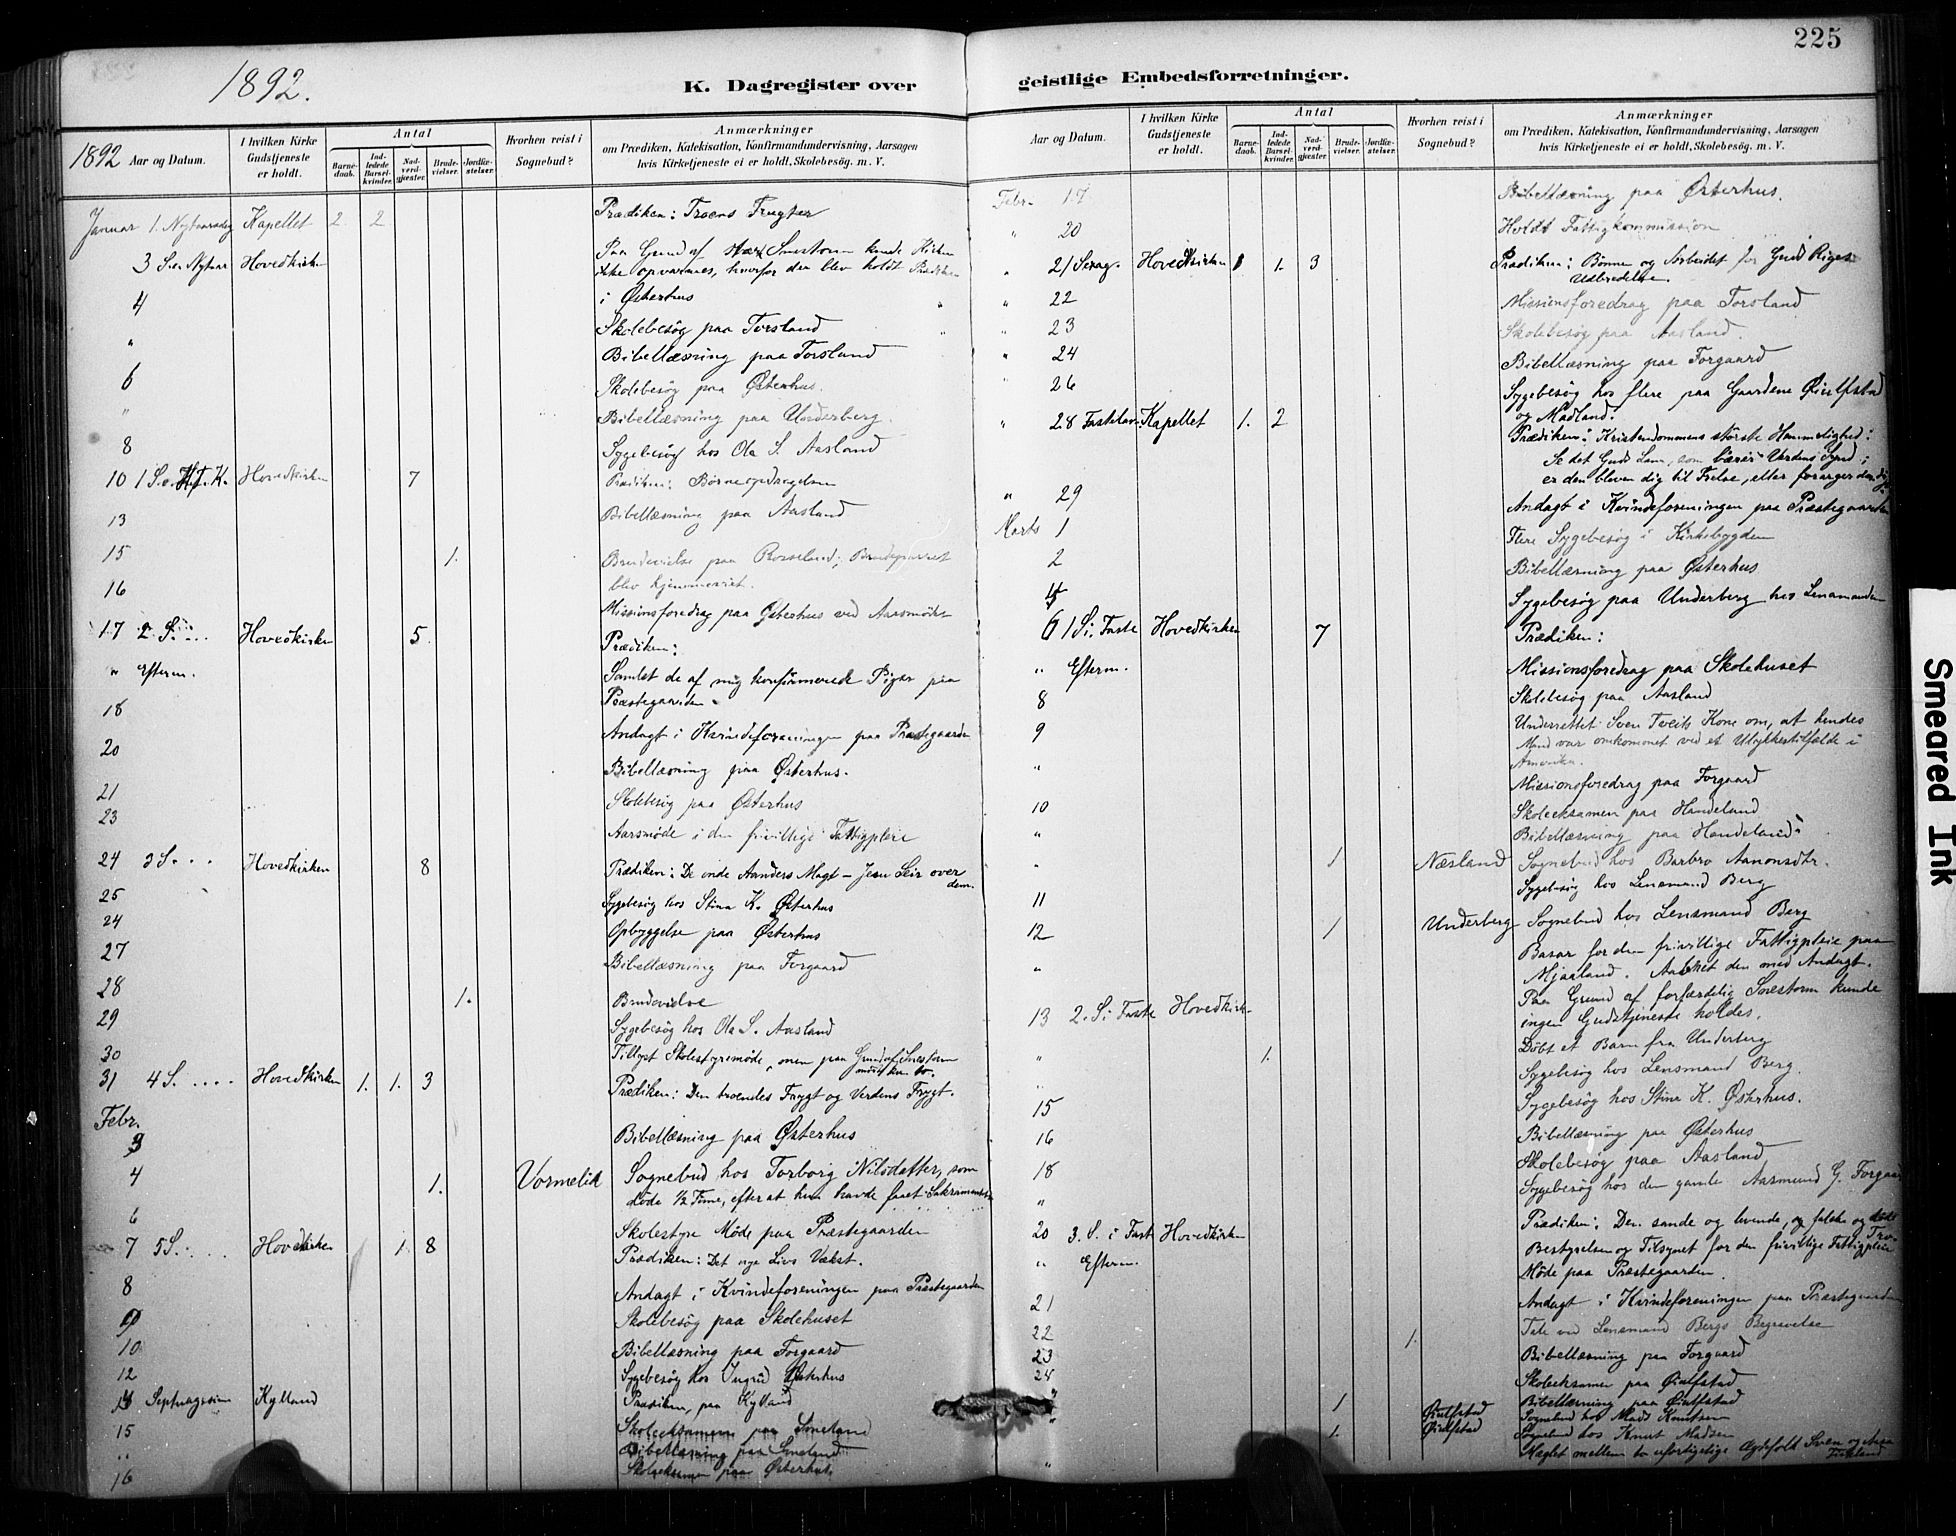 225
1892.
K. Dagregister over geistlige Embedsforretninger.
1892 Aar og Datum.
I hvilken Kirke Gudstjeneste er holdt.
Antal
Barnedaab.
Indledede Barselkvinder.
Nadverdgjæster.
Brudevielser.
Jordfæstelser.
Hvorhen reist i Sognebud?
Anmærkninger
om Prædiken, Katekisation, Konfirmandundervisning, Aarsagen
hvis Kirketjeneste ei er holdt, Skolebesög. m. V.
Januar 1. Nytaarsdag Kapellet 2 2 Prædiken: Troens Frugter
3 S. e. Nytaar Hovedkirken Paa Grund af Snestorm kunde Kirken
ikke opvarmes, hvorfor der blev holdt Prædiken
i Østerhus
4 Skolebesög paa Torsland
" Bibellæsning paa Torsland
6 Skolebesög paa Østerhus.
" Bibellæsning paa Underberg.
8 Sygebesög hos Ola S. Aasland
10 1 S. e. H. T. K. Hovedkirken 7 Prædiken: Børneopdragelsen
13 Bibellæsning paa Aasland
15 1. Brudevielse paa Rosseland; Brudeparret
blev hjemmeviet.
16 Missionsforedrag paa Østerhus ved Aarsmöde
17 2 S. Hovedkirken 5 Prædiken:
" Efterm. Samlet de af mig konfirmerede Piger paa
Præstegaarden.
18 Andagt i Kvindeforeningen paa Præstegaarden
20 Bibellæsning paa Østerhus.
21 Skolebesög paa Østerhus
23 Aarsmöde i den frivillige Fattigpleie
24 3 S. Hovedkirken 8 Prædiken: De onde Aanders Magt – Jesu Seir over
dem.
25 Sygebesög hos Stina K. Østerhus
24 Opbyggelse paa Østerhus
27 Bibellæsning paa Forgaard
28 1. Brudevielse
29 Sygebesög hos Ola S. Aasland
30 Tillyst Skolestyremöde, men paa Grund af Snestorm
31 4 S. Hovedkirken 1. 1. 3 Prædiken: Den troendes Frygt og Verdens Frygt.
Febr.
3 Bibellæsning paa Østerhus
4 1. Vormelid Sognebud hos Torborg Nilsdatter, som
döde 1/2 Time, efter at hun havde faaet Sakramentet
6 Skolestyre Möde paa Præstegaarden
7 5 S. Hovedkirken 1 8 Prædiken: Det nye Livs Vækst.
8 Andagt i Kvindeforeningen paa Præstegaarden
9 Skolebesög paa Skolehuset
10 Bibellæsning paa Forgaard
12 Sygebesög hos Ingrid Østerhus
14 Septuagesim Kylland Prædiken, paa Kylland
15 Skoleeksamen paa Smeland
" Bibellæsning paa Smeland
16 Skoleeksamen paa Østerhus
Aar og Datum.
I hvilken Kirke Gudstjeneste er holdt.
Antal
Barnedaab.
Indledede Barselkvinder.
Nadverdgjæster.
Brudevielser.
Jordfæstelser.
Hvorhen reist i Sognebud?
Anmærkninger
om Prædiken, Katekisation, Konfirmandundervisning, Aarsagen
hvis Kirketjeneste ei er holdt, Skolebesög. m. V.
Febr. 17 Bibellæsning paa Østerhus.
" 20 Holdt Fattigkommission
" 21 Hovedkirken 1 1. 3 Prædiken: Bönnen og Arbeidet for Guds Riges
Udbredelse.
" 22 Missionsforedrag paa Torsland
" 23 Skolebesög paa Aasland.
" 24 Bibellæsning paa Forgaard
" 26 Sygebesög hos flere paa Gaardene Øiulfstad
og Madland.
" 28 Fastelavn Kapellet 1. 2 Prædiken: Kristendommens störste Hemmelighed:
Se det Guds Lam, som bærer Verdens Synd;
er den bleven dig til Frelse, eller forarger den dig?
" 29 Andagt i Kvindeforeningen paa Præstegaarden
Marts 1 Flere Sygebesög i Kirkebygden
2 Bibellæsning paa Østerhus
5 Sygebesög paa Underberg hos Lensmanden
6 1 S. i Faste Hovedkirken 7 Prædiken:
" Efterm. Missionsforedrag paa Skolehuset
8 Skolebesög paa Aasland
9 Underrettet Sven Tveits Kone om, at hendes
Mand var omkommet ved et Ulykkestilfælde i
Amerika.
" Missionsforedrag paa Forgaard
10 Skoleeksamen paa Handeland
" Bibellæsning paa Handeland
" 1 Næsland Sognebud hos Barbro Aanonsdtr.
11 Sygebesög hos Lensmand Berg
12 1 Underberg Sognebud hos Lensmand Berg
" Basar for den frivillige Fattigpleie paa
Mjaaland. Aabnet den med Andagt.
13 2. S. i Faste Hovedkirk. Paa Grund af forfærdelig Snestorm kunde
ingen Gudstjeneste holdes.
" 1. Döbt et Barn fra Underberg
" Sygebesög hos Lensmand Berg.
15 Sygebesög hos Stina K. Østerhus.
16 Bibellæsning paa Østerhus
18 Skolebesög paa Aasland
" Sygebesög hos den gamle Aasmund G. Forgaard
20 3. S. i Fast Hovedkirken Prædiken: Den sande og levende, og falske og döde
Tro.
" Efterm. Bestyrelsen og Tilsynet for den frivillige Fattigpleie
Möde paa Præstegaarden.
21 Andagt i Kvindeforeningen paa Præstegaarden
22 1. Tale ved Lensmand Bergs Begravelse
23 Bibellæsning paa Forgaard
24 Skoleeksamen paa Øiulfstad
" Bibellæsning paa Øiulfstad
" 1 Øiulfstad Sognebud hos Mads Knutsen
1. Øiulfstad Sognebud hos Knut Madsen
" Mæglet mellem to uforligelige Ægtefolk Sven og
Smeared Ink